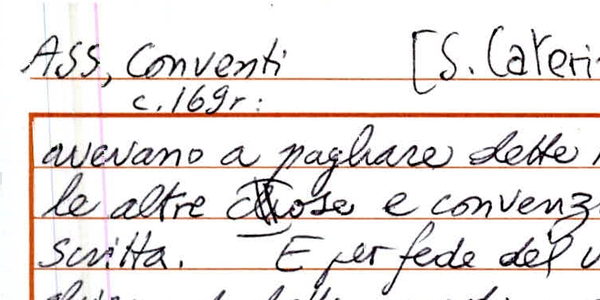 ASS, Conventi [S. Cateri
c. 169r:
avevano a paghare dette
le altre chose e convenz
scritta. E per fede del v